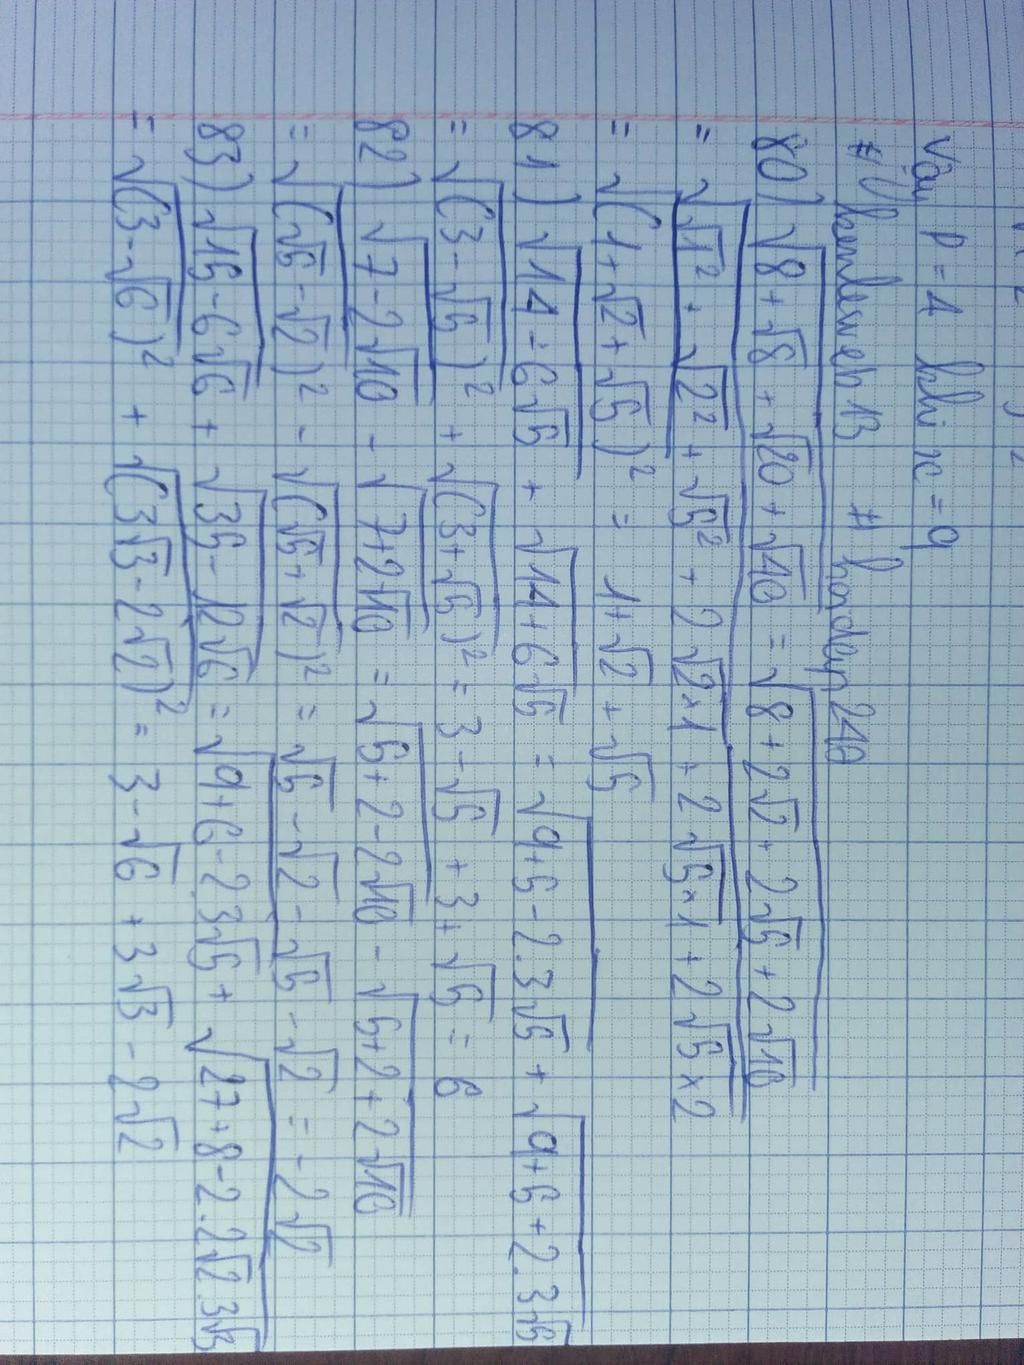 Vậy P = 1 khi x = 9
80) √8+√8+√20+√40 = √8+2√2+2√5+2√10
= √√1²+√2²+√5²+2√2×1+2√5×1+2√5×2
= √(1+√2+√5)² = 1+√2+√5
81) √14-6√5 + √14+6√5 = √9+5-2.3√5 + √9+5+2.3√5
= √(3-√5)² + √(3+√5)² = 3-√5+3+√5 = 6
82) √7-2√10 - √7+2√10 = √5+2-2√10 - √5+2+2√10
= √(√5-√2)² - √(√5+√2)² = √5-√2-√5-√2 = -2√2
83) √15-6√6 + √35-12√6 = √9+6-2.3√6 + √27+8-2.2√2.3√3
= √(3-√6)² + √(3√3-2√2)² = 3-√6+3√3-2√2